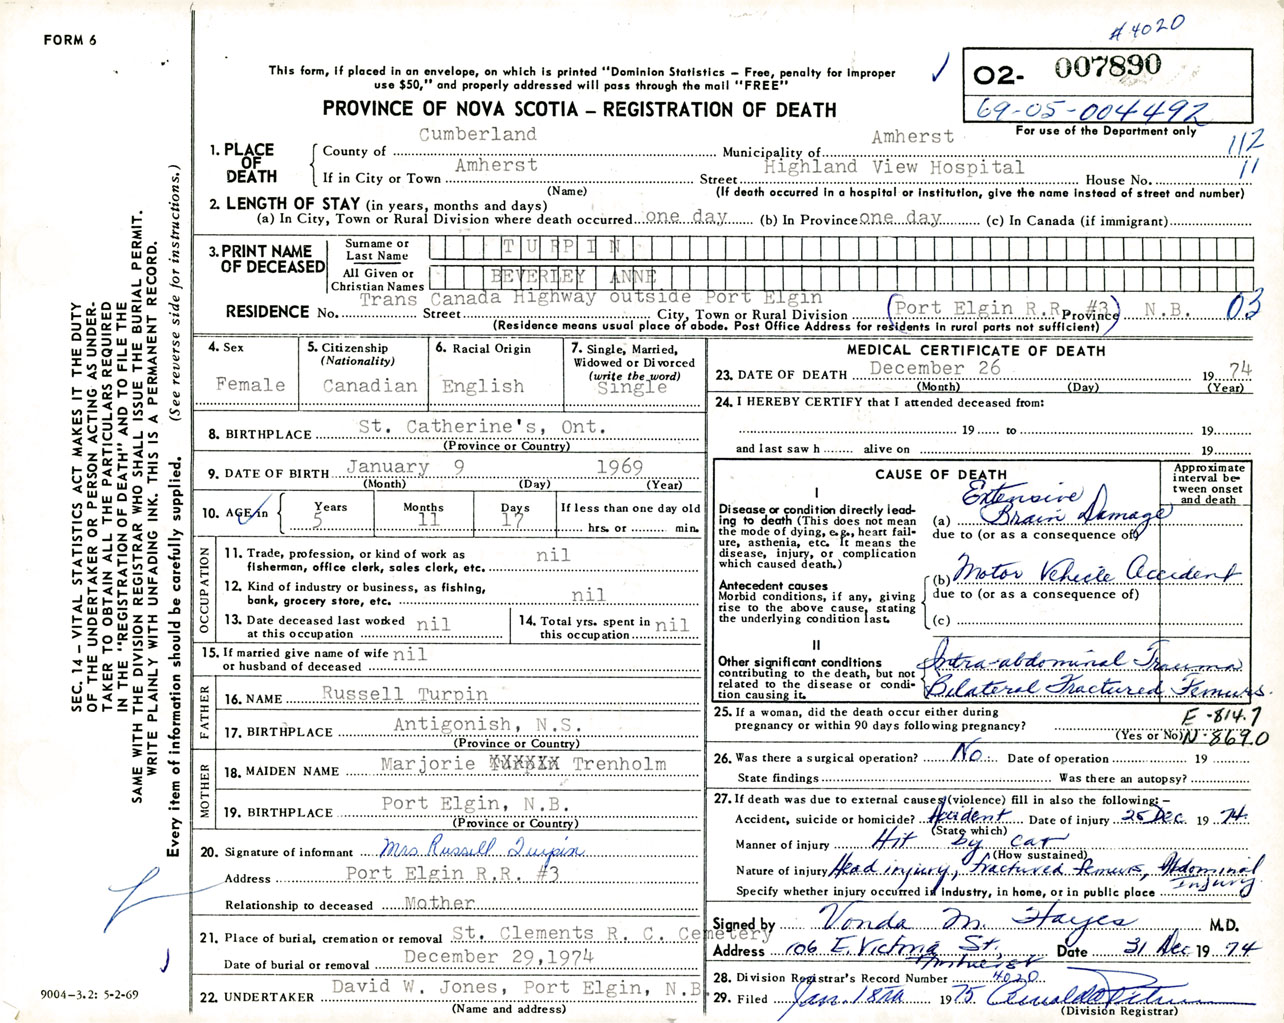 # 4020
FORM 6
This form, if placed in an envelope, on which is printed "Dominion Statistics – Free, penalty for improper
use $50," and properly addressed will pass through the mail "FREE"
O2- 007890
69-05-004492
For use of the Department only
PROVINCE OF NOVA SCOTIA – REGISTRATION OF DEATH
112
11
1. PLACE OF DEATH
County of Cumberland Municipality of Amherst
If in City or Town Amherst Street Highland View Hospital House No.
(Name) (If death occurred in a hospital or institution, give the name instead of street and number)
2. LENGTH OF STAY (in years, months and days)
(a) In City, Town or Rural Division where death occurred one day (b) In Province one day (c) In Canada (if immigrant)
3. PRINT NAME OF DECEASED
Surname or Last Name TURPIN
All Given or Christian Names BEVERLEY ANNE
Trans Canada Highway outside Port Elgin (Port Elgin R.R. #3) N.B. 03
RESIDENCE No. Street City, Town or Rural Division Province
(Residence means usual place of abode. Post Office Address for residents in rural parts not sufficient)
4. Sex Female
5. Citizenship (Nationality) Canadian
6. Racial Origin English
7. Single, Married, Widowed or Divorced (write the word) Single
8. BIRTHPLACE St. Catherine's, Ont.
(Province or Country)
9. DATE OF BIRTH January 9 1969
(Month) (Day) (Year)
10. AGE in Years 5 Months 11 Days 17 If less than one day old hrs. or min.
OCCUPATION
11. Trade, profession, or kind of work as
fisherman, office clerk, sales clerk, etc. nil
12. Kind of industry or business, as fishing,
bank, grocery store, etc. nil
13. Date deceased last worked
at this occupation nil
14. Total yrs. spent in
this occupation nil
15. If married give name of wife
or husband of deceased nil
FATHER
16. NAME Russell Turpin
17. BIRTHPLACE Antigonish, N.S.
(Province or Country)
MOTHER
18. MAIDEN NAME Marjorie Trenholm
19. BIRTHPLACE Port Elgin, N.B.
(Province or Country)
20. Signature of informant Mrs Russell Turpin
Address Port Elgin R.R. #3
Relationship to deceased Mother
21. Place of burial, cremation or removal St. Clements R. C. Cemetery
Date of burial or removal December 29,1974
22. UNDERTAKER David W. Jones, Port Elgin, N.B
(Name and address)
MEDICAL CERTIFICATE OF DEATH
23. DATE OF DEATH December 26 1974
(Month) (Day) (Year)
24. I HEREBY CERTIFY that I attended deceased from:
19 to 19
and last saw h alive on 19
CAUSE OF DEATH
Approximate interval between onset and death
I
Disease or condition directly leading to death (This does not mean the mode of dying, e.g., heart failure, asthenia, etc. It means the disease, injury, or complication which caused death.)
(a) Extensive Brain Damage
due to (or as a consequence of)
Antecedent causes
Morbid conditions, if any, giving rise to the above cause, stating the underlying condition last.
(b) Motor Vehicle Accident
due to (or as a consequence of)
(c)
II
Other significant conditions
contributing to the death, but not related to the disease or condition causing it.
Intra-abdominal Trauma
Bilateral Fractured Femurs.
25. If a woman, did the death occur either during
pregnancy or within 90 days following pregnancy?
(Yes or No)
E-814.7
N-869.0
26. Was there a surgical operation? No. Date of operation 19
State findings Was there an autopsy?
27. If death was due to external causes (violence) fill in also the following:–
Accident, suicide or homicide? Accident Date of injury 25 Dec 1974
(State which)
Manner of injury Hit by car
(How sustained)
Nature of injury Head injury, fractured femurs, Abdominal Injury.
Specify whether injury occurred in industry, in home, or in public place
Signed by Vonda M. Hayes M.D.
Address 106 E. Victoria St. Amherst Date 31 Dec 1974
28. Division Registrar's Record Number 4020
29. Filed Jan. 18th 1975
(Division Registrar)
SEC. 14 – VITAL STATISTICS ACT MAKES IT THE DUTY
OF THE UNDERTAKER OR PERSON ACTING AS UNDER-
TAKER TO OBTAIN ALL THE PARTICULARS REQUIRED
IN THE "REGISTRATION OF DEATH" AND TO FILE THE
SAME WITH THE DIVISION REGISTRAR WHO SHALL ISSUE THE BURIAL PERMIT.
WRITE PLAINLY WITH UNFADING INK. THIS IS A PERMANENT RECORD.
Every item of information should be carefully supplied. (See reverse side for instructions.)
9004–3.2: 5-2-69